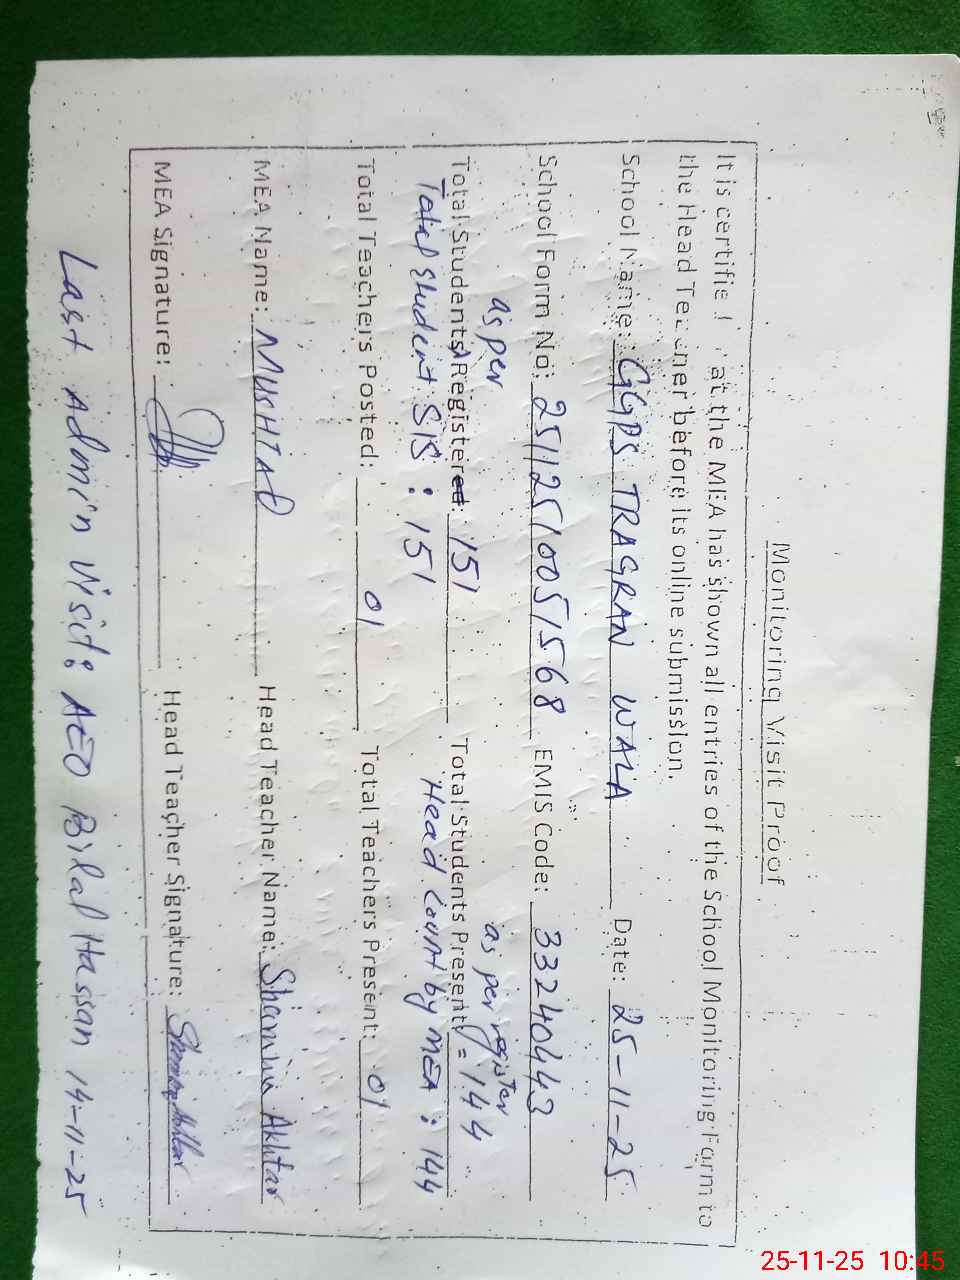 Monitoring Visit Proof
It is certifie at the MEA has shown all entries of the School Monitoring Form to
the Head Teacher before its online submission.
School Name: GGPS TRAGRAN WALA Date: 25-11-25
School Form No: 25112510051568 EMIS Code: 33240443
as per as per register
Total Students Registered: 151 Total Students Present: = 144
Total student SIS : 151 Head Count by MEA : 144
Total Teachers Posted: 01 Total Teachers Present: 01
MEA Name: MUSHTAQ Head Teacher Name: Shamim Akhtar
MEA Signature: Head Teacher Signature:
Last Admin Visit: AEO Bilal Hassan 14-11-25
25-11-25 10:45